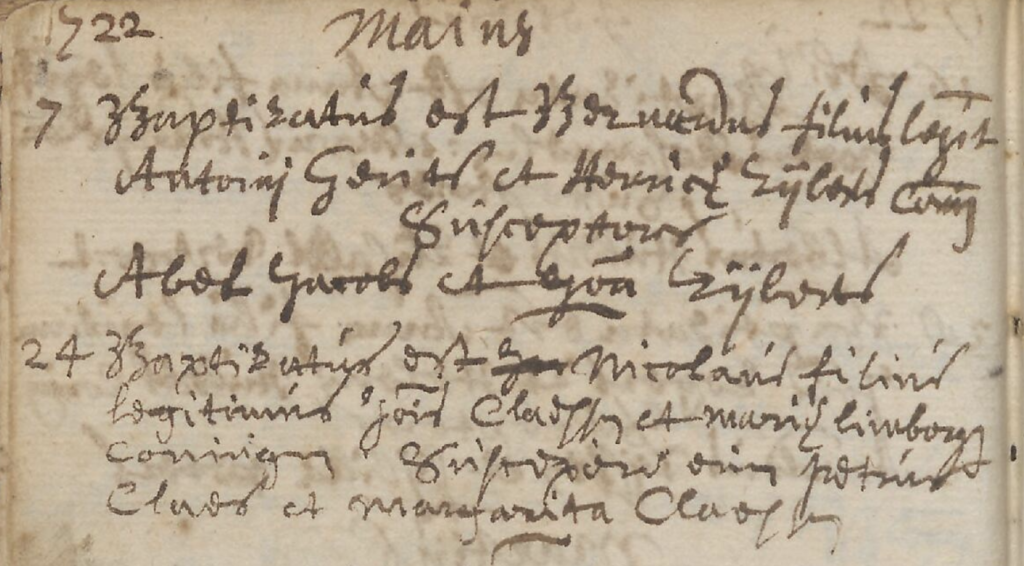 1722 Maius
7 Baptizatus est Bernardus filius legit
Antonij Gerits et Henricę Zijberts Conj
Susceptores
Abel Jacobs et Joā Zijberts
24 Baptizatus est Nicolaus filius
legitimus Jois Claessen et Marię limborgs
Coniugum Suscepere eum petrus
Claes et Margarita Claessen